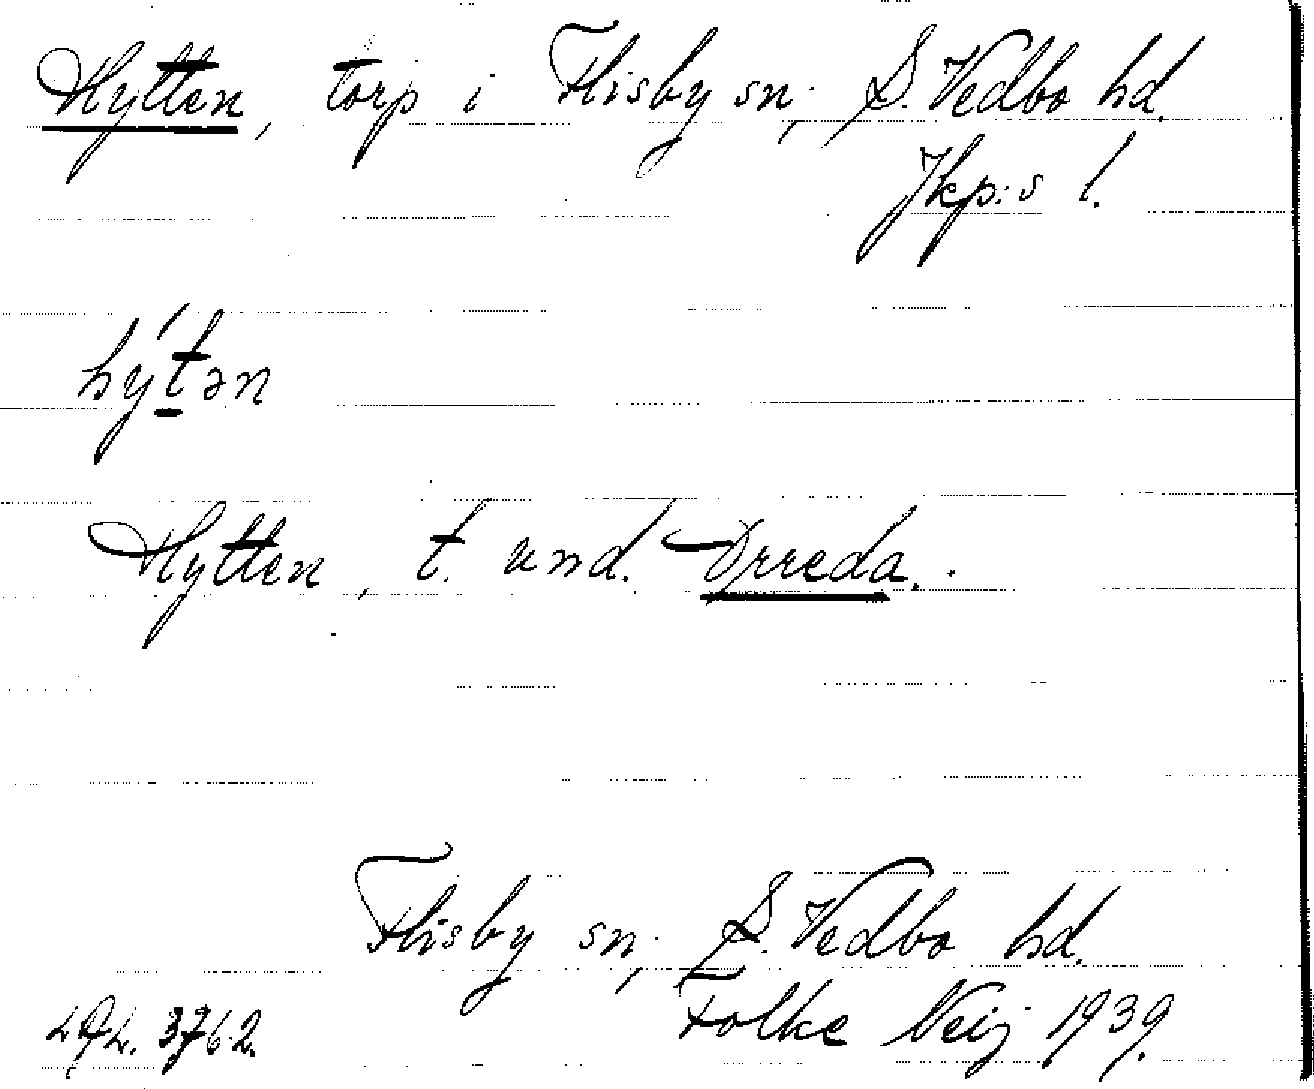 Hytten, torp i Flisby sn, S. Vedbo hd.
Jkp:s l.
hýtən
Hytten, t. und. Örreda.
Flisby sn, S. Vedbo hd.
Folke Neij 1939.
3762.